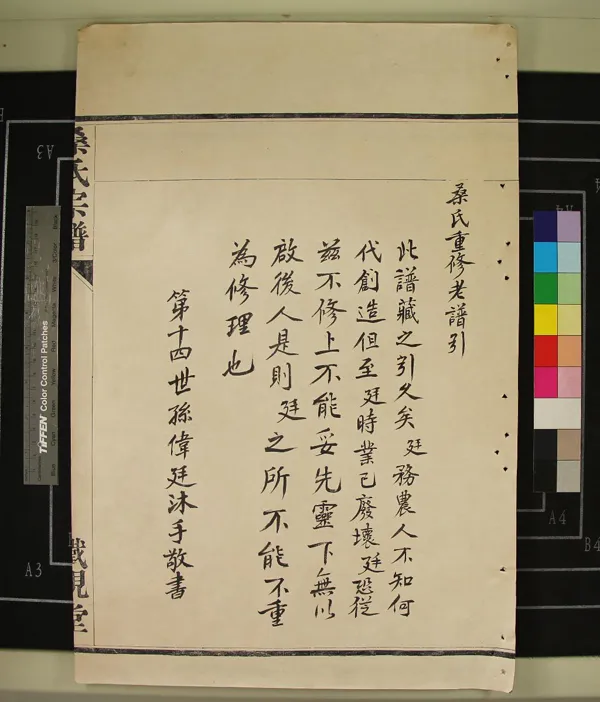 桑氏重修老譜引
此譜藏之引久矣 廷務農人不知何
代創造但至 廷時業已廢壞 廷恐從
茲不修上不能妥先靈下無以
啟後人是則 廷之所不能不重
為修理也
第十四世孫偉廷沐手敬書
桑氏宗譜
TIFFEN Color Control Patches
A3
A3
A4
B4